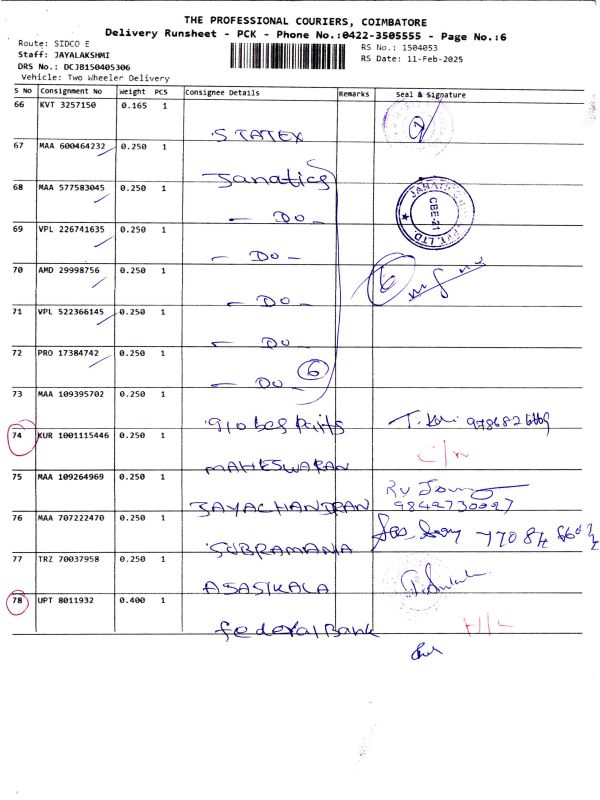 THE PROFESSIONAL COURIERS, COIMBATORE
Delivery Runsheet - PCK - Phone No.:0422-3505555 - Page No.:6
Route: SIDCO E
Staff: JAYALAKSHMI
DRS No.: DCJB150405306
Vehicle: Two Wheeler Delivery
RS No.: 1504053
RS Date: 11-Feb-2025
S No Consignment No Weight PCS Consignee Details Remarks Seal & Signature
66 KVT 3257150 0.165 1
STATEX
67 MAA 600464232 0.250 1
Janatics
68 MAA 577583045 0.250 1
- Do -
69 VPL 226741635 0.250 1
- Do -
70 AMD 29998756 0.250 1
- Do -
71 VPL 522366145 0.250 1
- Do -
72 PRO 17384742 0.250 1
- Do - 6
CBE-21
6
73 MAA 109395702 0.250 1
74 KUR 1001115446 0.250 1
MAHESWARAN
75 MAA 109264969 0.250 1
JAYACHANDRAN
9842730027
76 MAA 707222470 0.250 1
SUBRAMANIA
77 TRZ 70037958 0.250 1
ASASIKALA
78 UPT 8011932 0.400 1
federal Bank